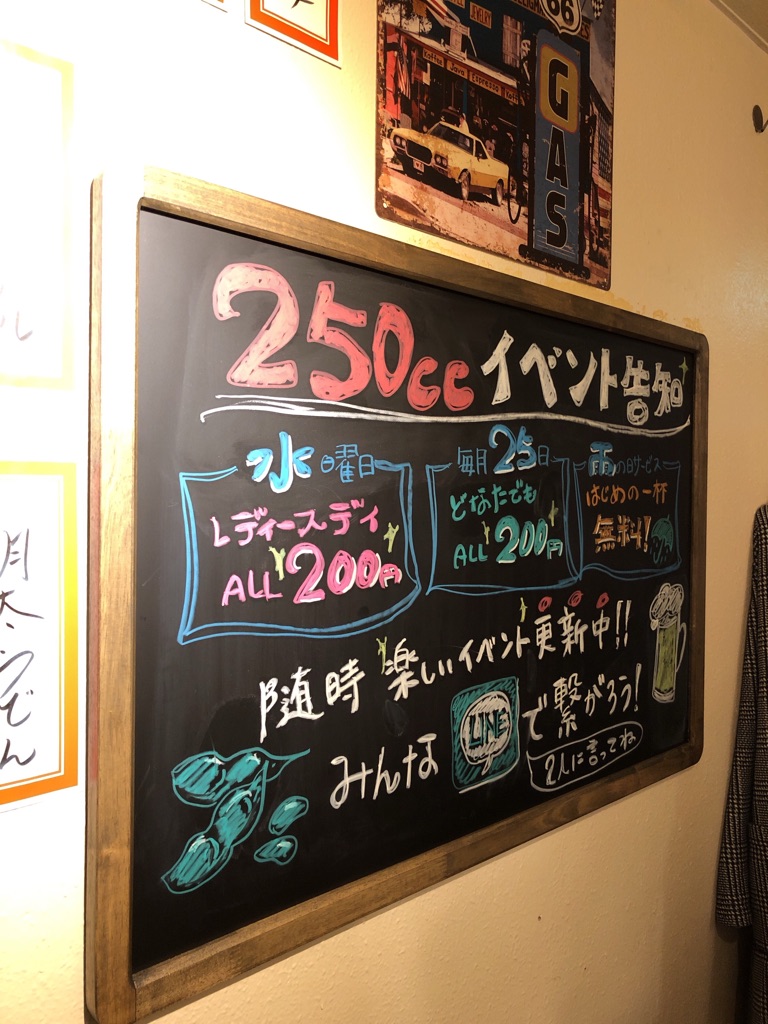 66
GAS
250cc イベント告知
水曜日
レディースデイ
ALL 200円
毎月25日
どなたでも
ALL 200円
雨の日サービス
はじめの一杯
無料!
随時 楽しいイベント更新中!!
みんな LINE で繋がろう!
2人に言ってね
月
うどん